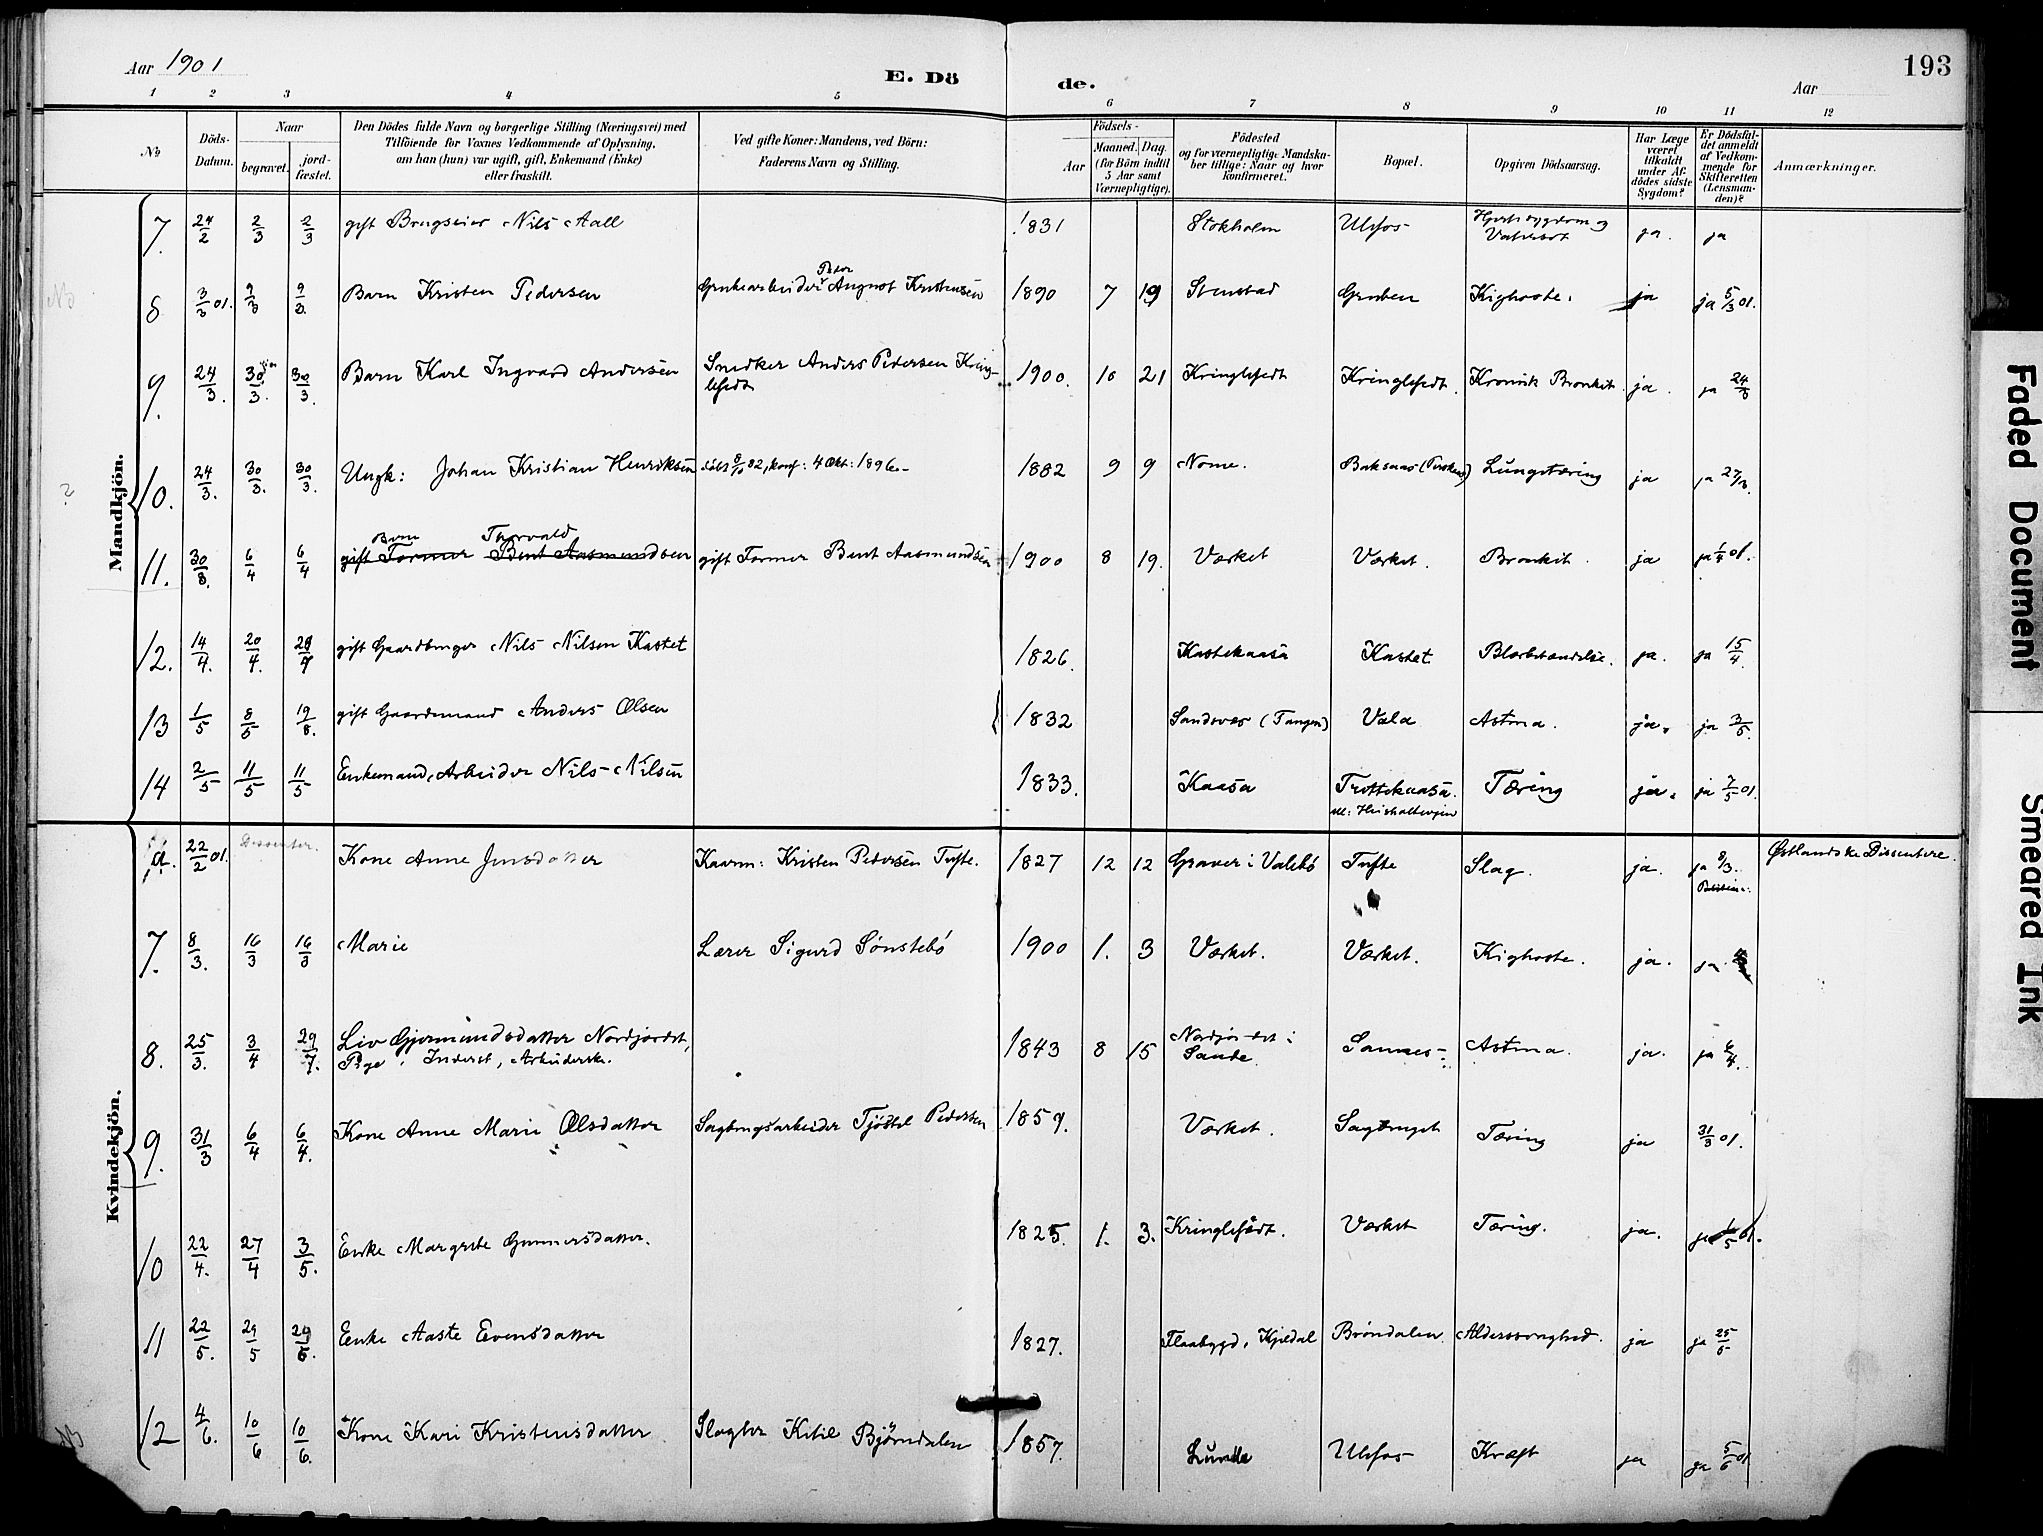 Aar 1901
E. Döde.
Aar
193
1 2 3 4 5 6 7 8 9 10 11 12
No
Döds-Datum.
Naar
begravet.
jord-fæstet.
Den Dödes fulde Navn og borgerlige Stilling (Næringsvei) med
Tilföiende for Voxnes Vedkommende af Oplysning,
om han (hun) var ugift, gift, Enkemand (Enke)
eller fraskilt.
Ved gifte Koner: Mandens, ved Börn:
Faderens Navn og Stilling.
Födsels-
Aar
Maaned. Dag.
(for Börn indtil
5 Aar samt
Værnepligtige).
Födested
og for værnepligtige Mandska-
ber tillige: Naar og hvor
konfirmeret.
Bopæl.
Opgiven Dödsaarsag.
Har Læge
været
tilkaldt
under Af-
dödes sidste
Sygdom?
Er Dödsfal-
det anmeldt
af Vedkom-
mende for
Skifteretten
(Lensman-
den)?
Anmærkninger.
Mandkjön.
7. 24/2 2/3 2/3 gift Brugseier Nils Aall 1831 Stokholm Ulefos Hjertesygdom og Vatersot ja. ja
8 3/3 01. 9/3 9/3. Barn Kristen Pedersen Grubearbeider Peter August Kristensen 1890 7 19 Stenstad Gruben Kighoste. ja ja 5/3 01.
9. 24/3. 30/3. 30/3. Barn Karl Ingvard Andersen Snedker Anders Pedersen Kringlefedt 1900. 10 21 Kringlefedt Kringlefedt. Kronisk Bronkit. ja. ja 24/3
10. 24/3. 30/3. 30/3. Ungk: Johan Kristian Henriksen döbt 8/10 82, konf: 4 Okt: 1896. 1882 9 9 Nome. Baksaas Lungetæring ja ja 27/3.
11. 30/3. 6/4 6/4 gift Former Bent Aasmundsen Barn Thorvald gift Former Bent Aasmundsen 1900 8 19. Værket Værket. Bronkit. ja ja 1/4 01.
12. 14/4. 20/4. 20/4 gift Gaardbruger Nils Nilsen Kastet 1826. Kastekaasa Kastet Blærbetændelse. ja. ja 15/4.
13 1/5 8/5 19/8. gift Gaardmand Anders Olsen 1832 Sandsves (Tangen) Vala Astma. ja. ja 3/5.
14 2/5 11/5 11/5 Enkemand, Arbeider Nils Nilsen 1833. Kaasa Trottekaasa. Tæring ja. ja 7/5 01.
Kvindekjön.
22/2 01. Dissenter. Kone Anne Jensdatter Kaarm: Kristen Pedersen Tufte. 1827 12 12 Graver i Valebö Tufte Slag. ja. ja 8/3. Østlandske Dissentere.
7. 8/3. 16/3 16/3 Marie Lærer Sigurd Sønstebö 1900 1. 3 Værket. Værket. Kighoste. ja. ja.
8. 25/3. 3/4 29/7. Liv Gjermundsdatter Nordjordet, Pige, Inderst, Arbeiderske. 1843 8 15 Nordjordet i Sande. Sannes Astma. ja. ja 6/4.
9. 31/3 6/4 6/4. Kone Anne Marie Olsdatter Sagbrugsarbeider Tjöstel Pedersen 1859. Værket. Sagbruget Tæring ja 31/3 01.
10 22/4. 27/4 3/5. Enke Margrete Gunnersdatter. 1825. 1. 3. Kringlefødt. Værket Tæring. ja. ja 1/5 01.
11 22/5. 29/5 29/5. Enke Aaste Evensdatter 1827. Flaabygd, Kjeldal Brøndalen Alderssvaghed. ja ja 25/5
12 4/6. 10/6 10/6. Kone Kari Kristensdatter Slagter Kitil Bjørndalen 1857. Lunde Ulefos Kræft ja ja 5/6 01
Faded Document
Smeared Ink